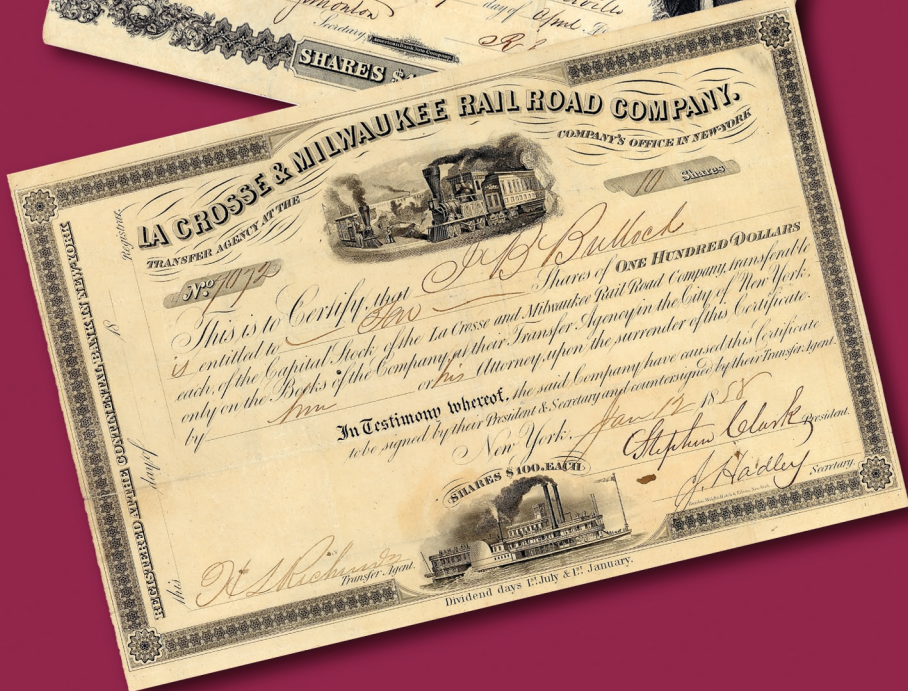 day of
Secretary
SHARES $
LA CROSSE & MILWAUKEE RAIL ROAD COMPANY.
TRANSFER AGENCY AT THE
COMPANY'S OFFICE IN NEW-YORK
No. 7072
10 Shares
This is to Certify, that J B Bullock
is entitled to Ten Shares of ONE HUNDRED DOLLARS
each, of the Capital Stock of the La Crosse and Milwaukee Rail Road Company, transferable
only on the Books of the Company, at their Transfer Agency in the City of New York,
by him or his Attorney, upon the surrender of this Certificate.
In Testimony whereof, the said Company have caused this Certificate
to be signed by their President & Secretary and countersigned by their Transfer Agent.
New York, Jan 12 1858
Stephen Clark President.
SHARES $100. EACH
J. Hadley Secretary.
Transfer Agent.
Dividend days 1st July & 1st January.
REGISTERED AT THE CONTINENTAL BANK IN NEW-YORK
this day of 18 Registrar.